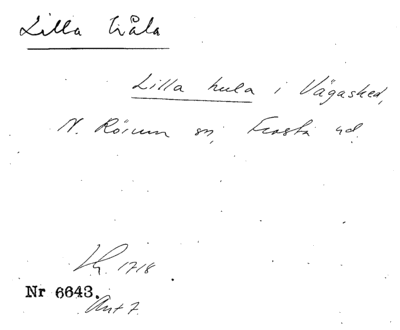 Lilla Håla
Lilla hula i Vägasked,
N. Rörum sn, Frosta hd.
1718.
Nr 6643.
Ant 7.